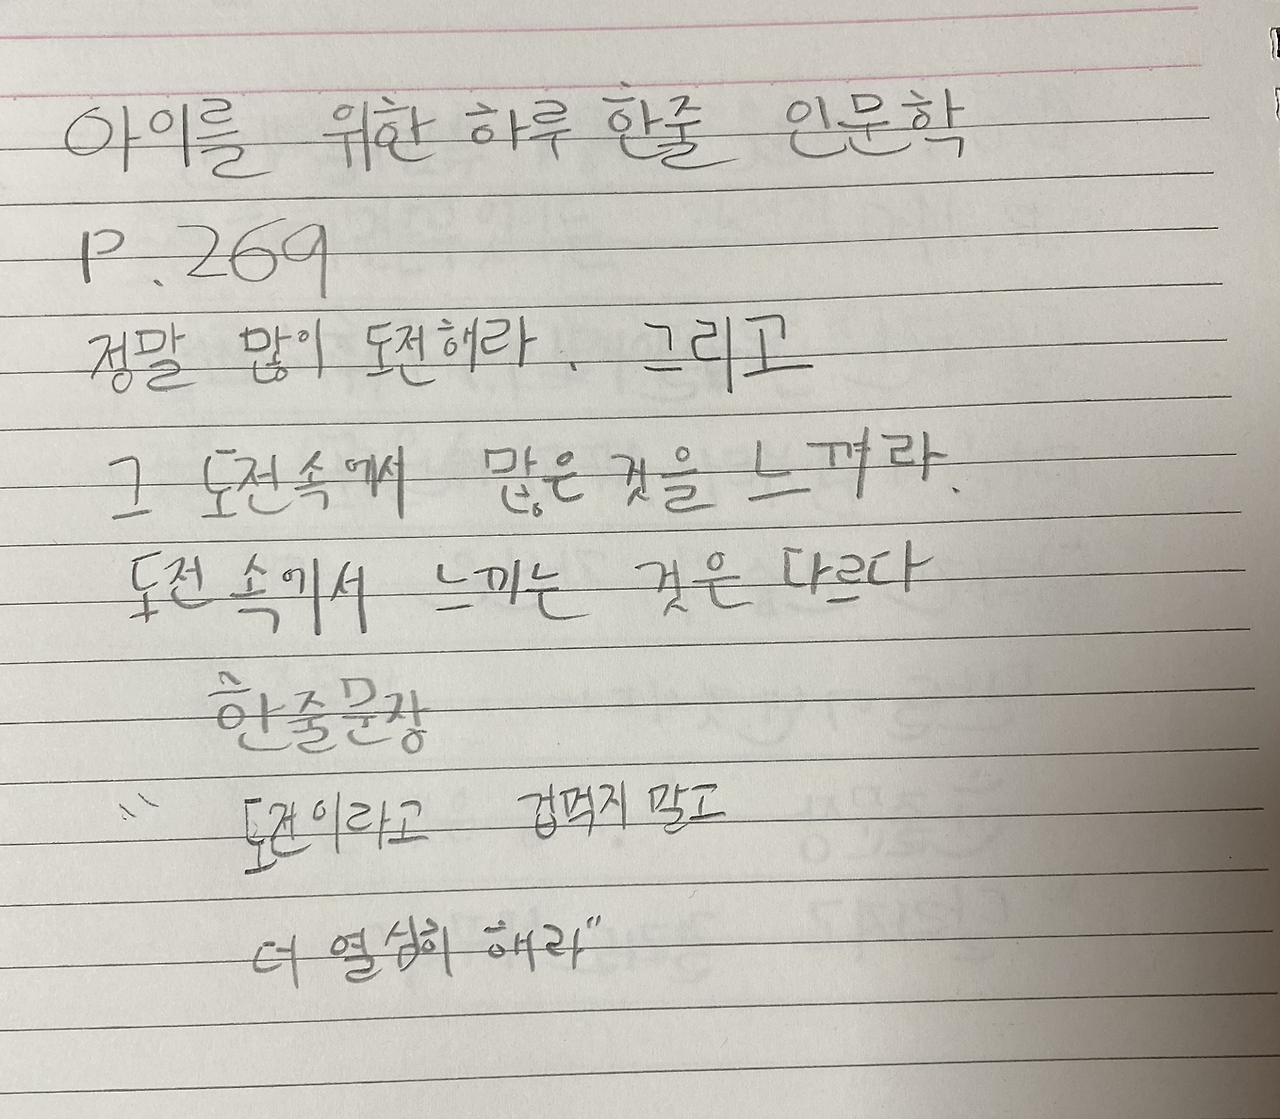 아이를 위한 하루 한줄 인문학
P.269
정말 많이 도전해라. 그리고
그 도전속에서 많은 것을 느껴라.
도전 속에서 느끼는 것은 다르다
한줄문장
" 도전이라고 겁먹지 말고
더 열심히 해라"